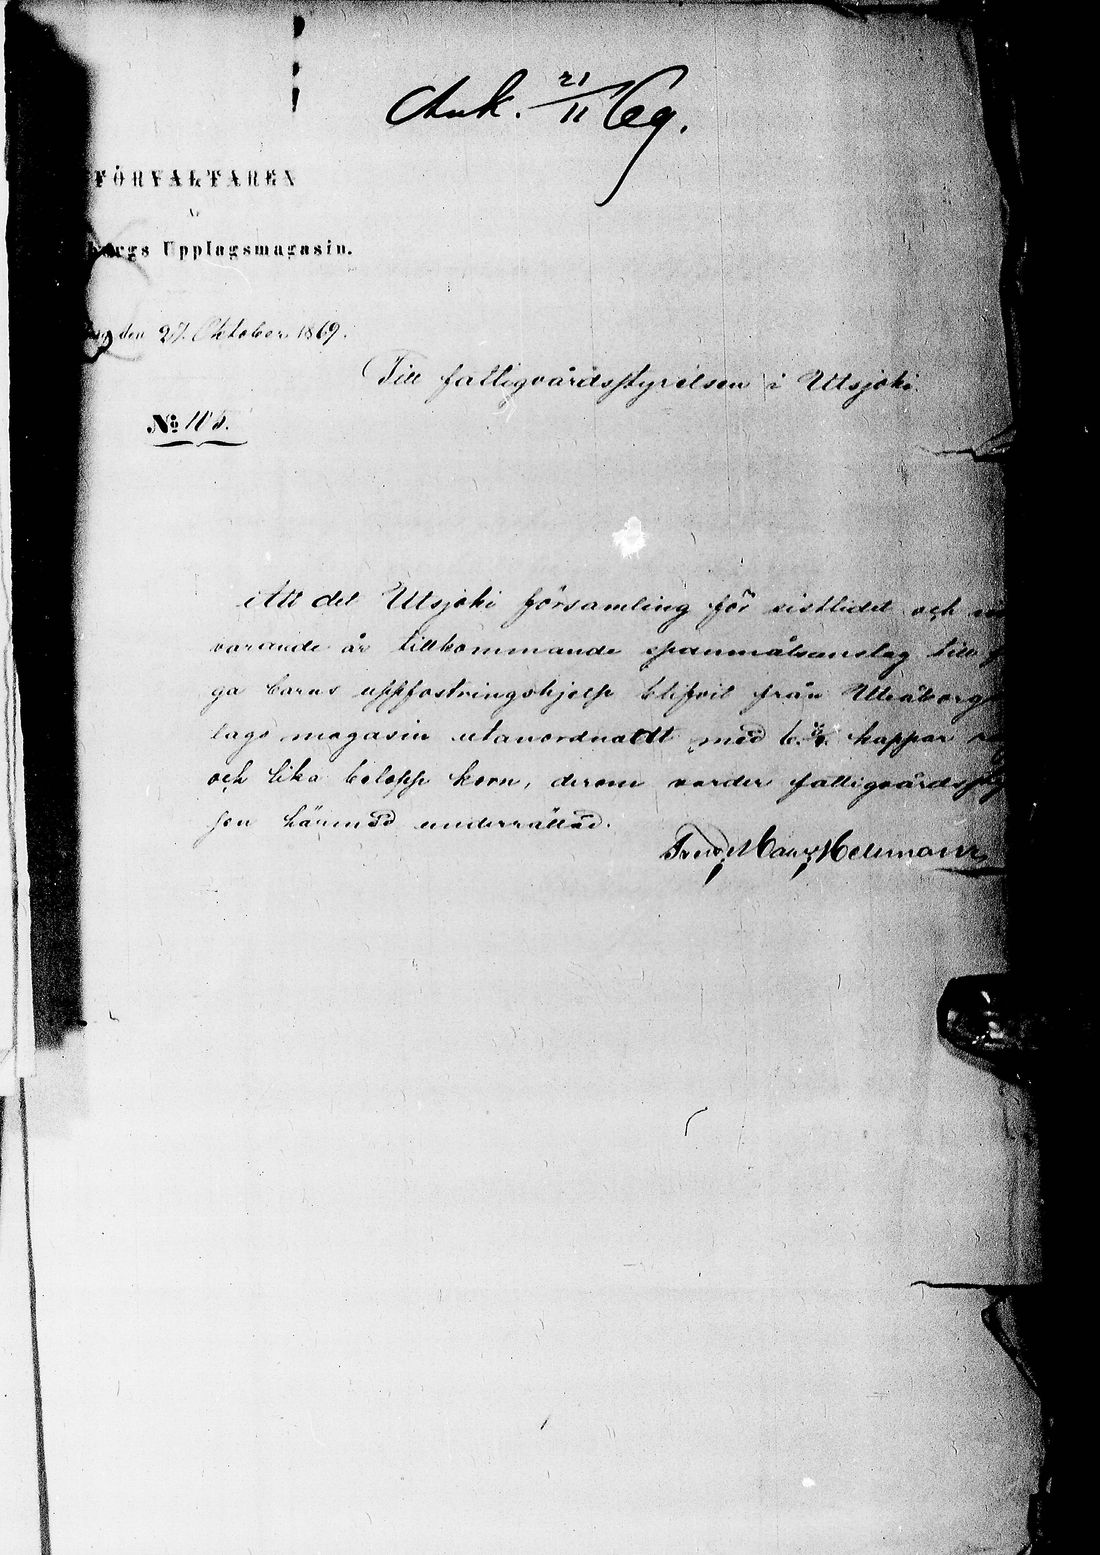 Ank. 21/11 69.
FÖRVALTAREN
Å
borgs Upplagsmagasin.
den 27. Oktober 1869.
Till fattigvårdsstyrelsen i Utsjoki
No 105.
Att det Utsjoki församling för sistlidet och
varande år tillkommande spanmålsanslag till
ga barns uppfostringshjelp blifvit från Uleåborgs
lags magasin utanordnadt med 6. kappar
och lika belopp korn, derom varder fattigvårdssty
sen härmed underrättad.